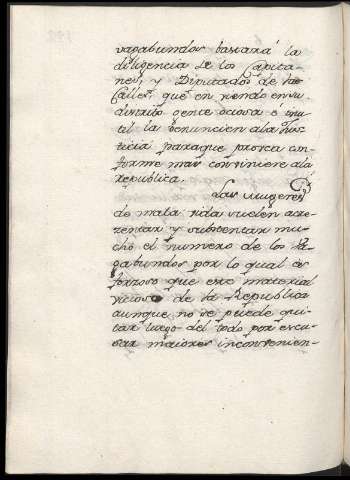 vagabundos bastará la
diligencia de los Capita-
nes, y Diputados de las
Calles, que en viendo en su
distrito gente ociosa é inu-
til la denuncien a la Jus-
ticia para que provea con-
forme mas conviniere a la
republica.
Las mugeres
de mala vida suelen acre-
zentar y substentar mu-
cho el numero de los Va-
gabundos por lo qual es
forzoso que este material
vicioso de la Republica
aunque no se puede qui-
tar luego del todo por escu-
sar maiores inconvenien-